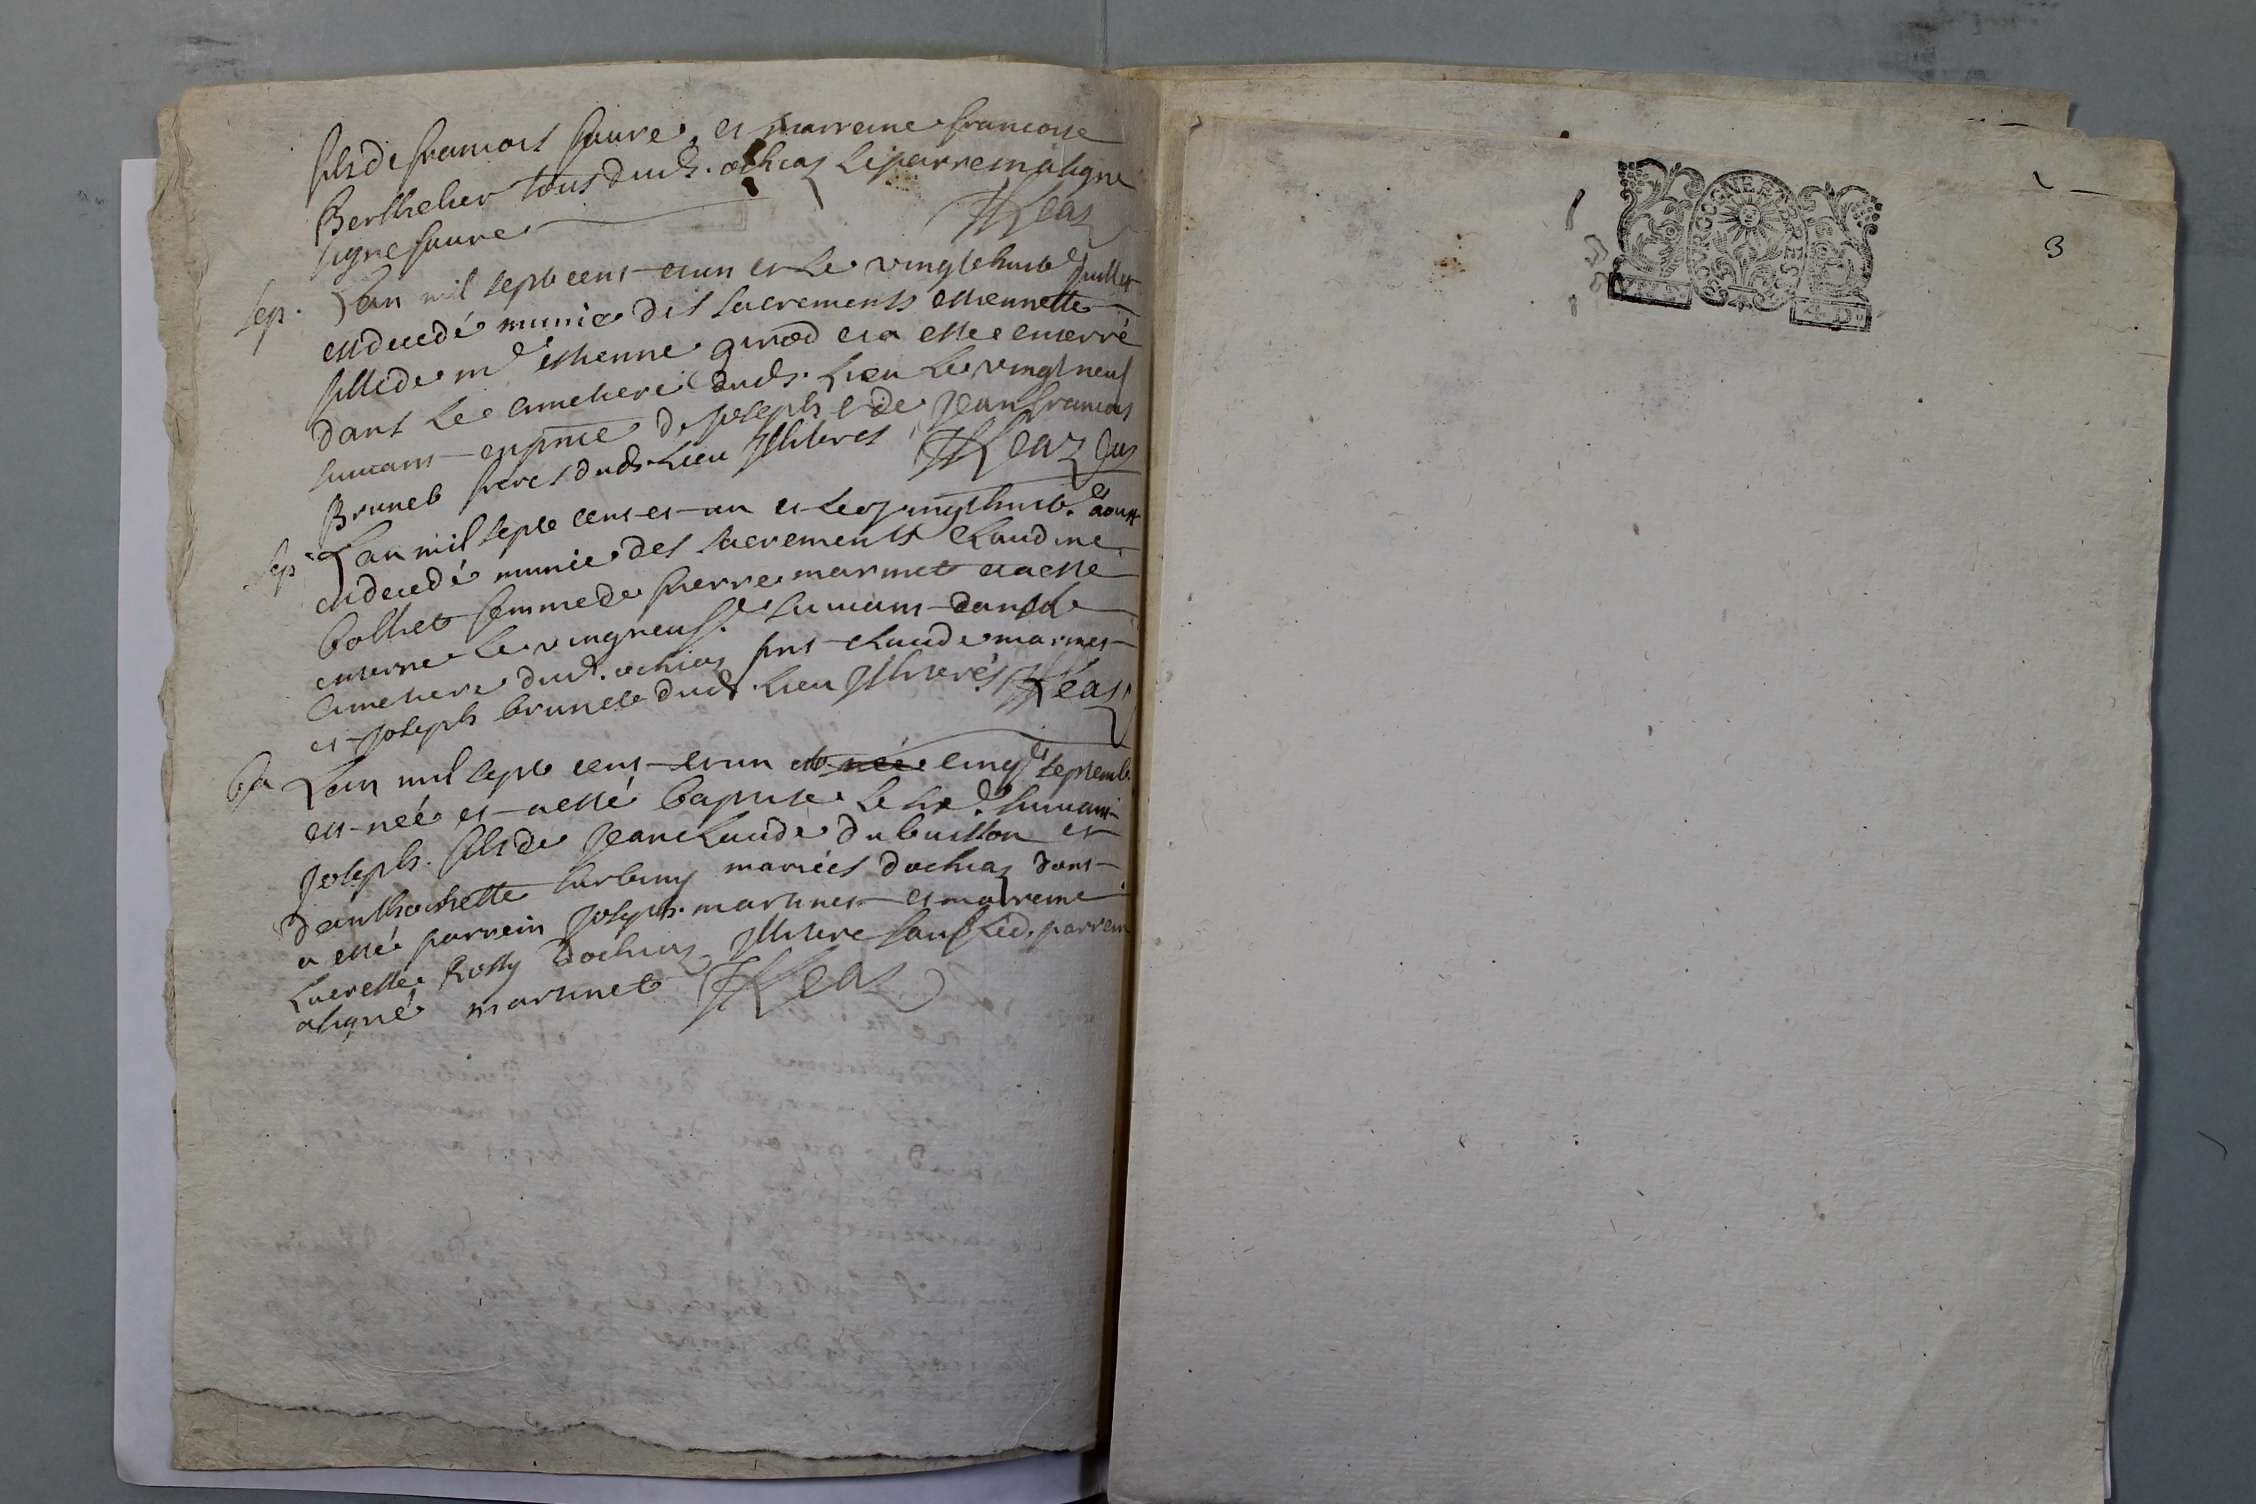 fils de francois faure, et marreine francoise
Berthelier tous dud. ochiaz le parrein a signe
signe faure
sep. L'an mil sept cent et un et le vingt huict.e Juillet
est decedé munie des sacrements estiennette
fille de m.e estienne girod et a esté enterré
dans le cimetiere dud. Lieu le vingt neuf
suivant en p̃nce de joseph et de jean francois
Brunet freres dud. Lieu Illiteres
sep. L'an mil sept cent et un et le vingt huict.e aoust
est decedé munie des sacrements Claudine
bolliet femme de pierre marmet et a esté
enterre le vingneuf.e suivant dans le
cimetiere dud. ochiaz pnt claude marmet
et joseph brunet dud. Lieu Illiterés
ba L'an mil sept cent et un et née cinq.e septemb.
est née et a esté baptisé le six.e suivant
joseph fils de jean claude du buisson et
d'anthoinette mariées d'ochiaz dont
a esté parrein joseph martinet et marreine
Lucresse Rossy d'ochiaz Illitere sauf led. parrein
a signé martinet
BOURGOGNE ET BRESSE
3